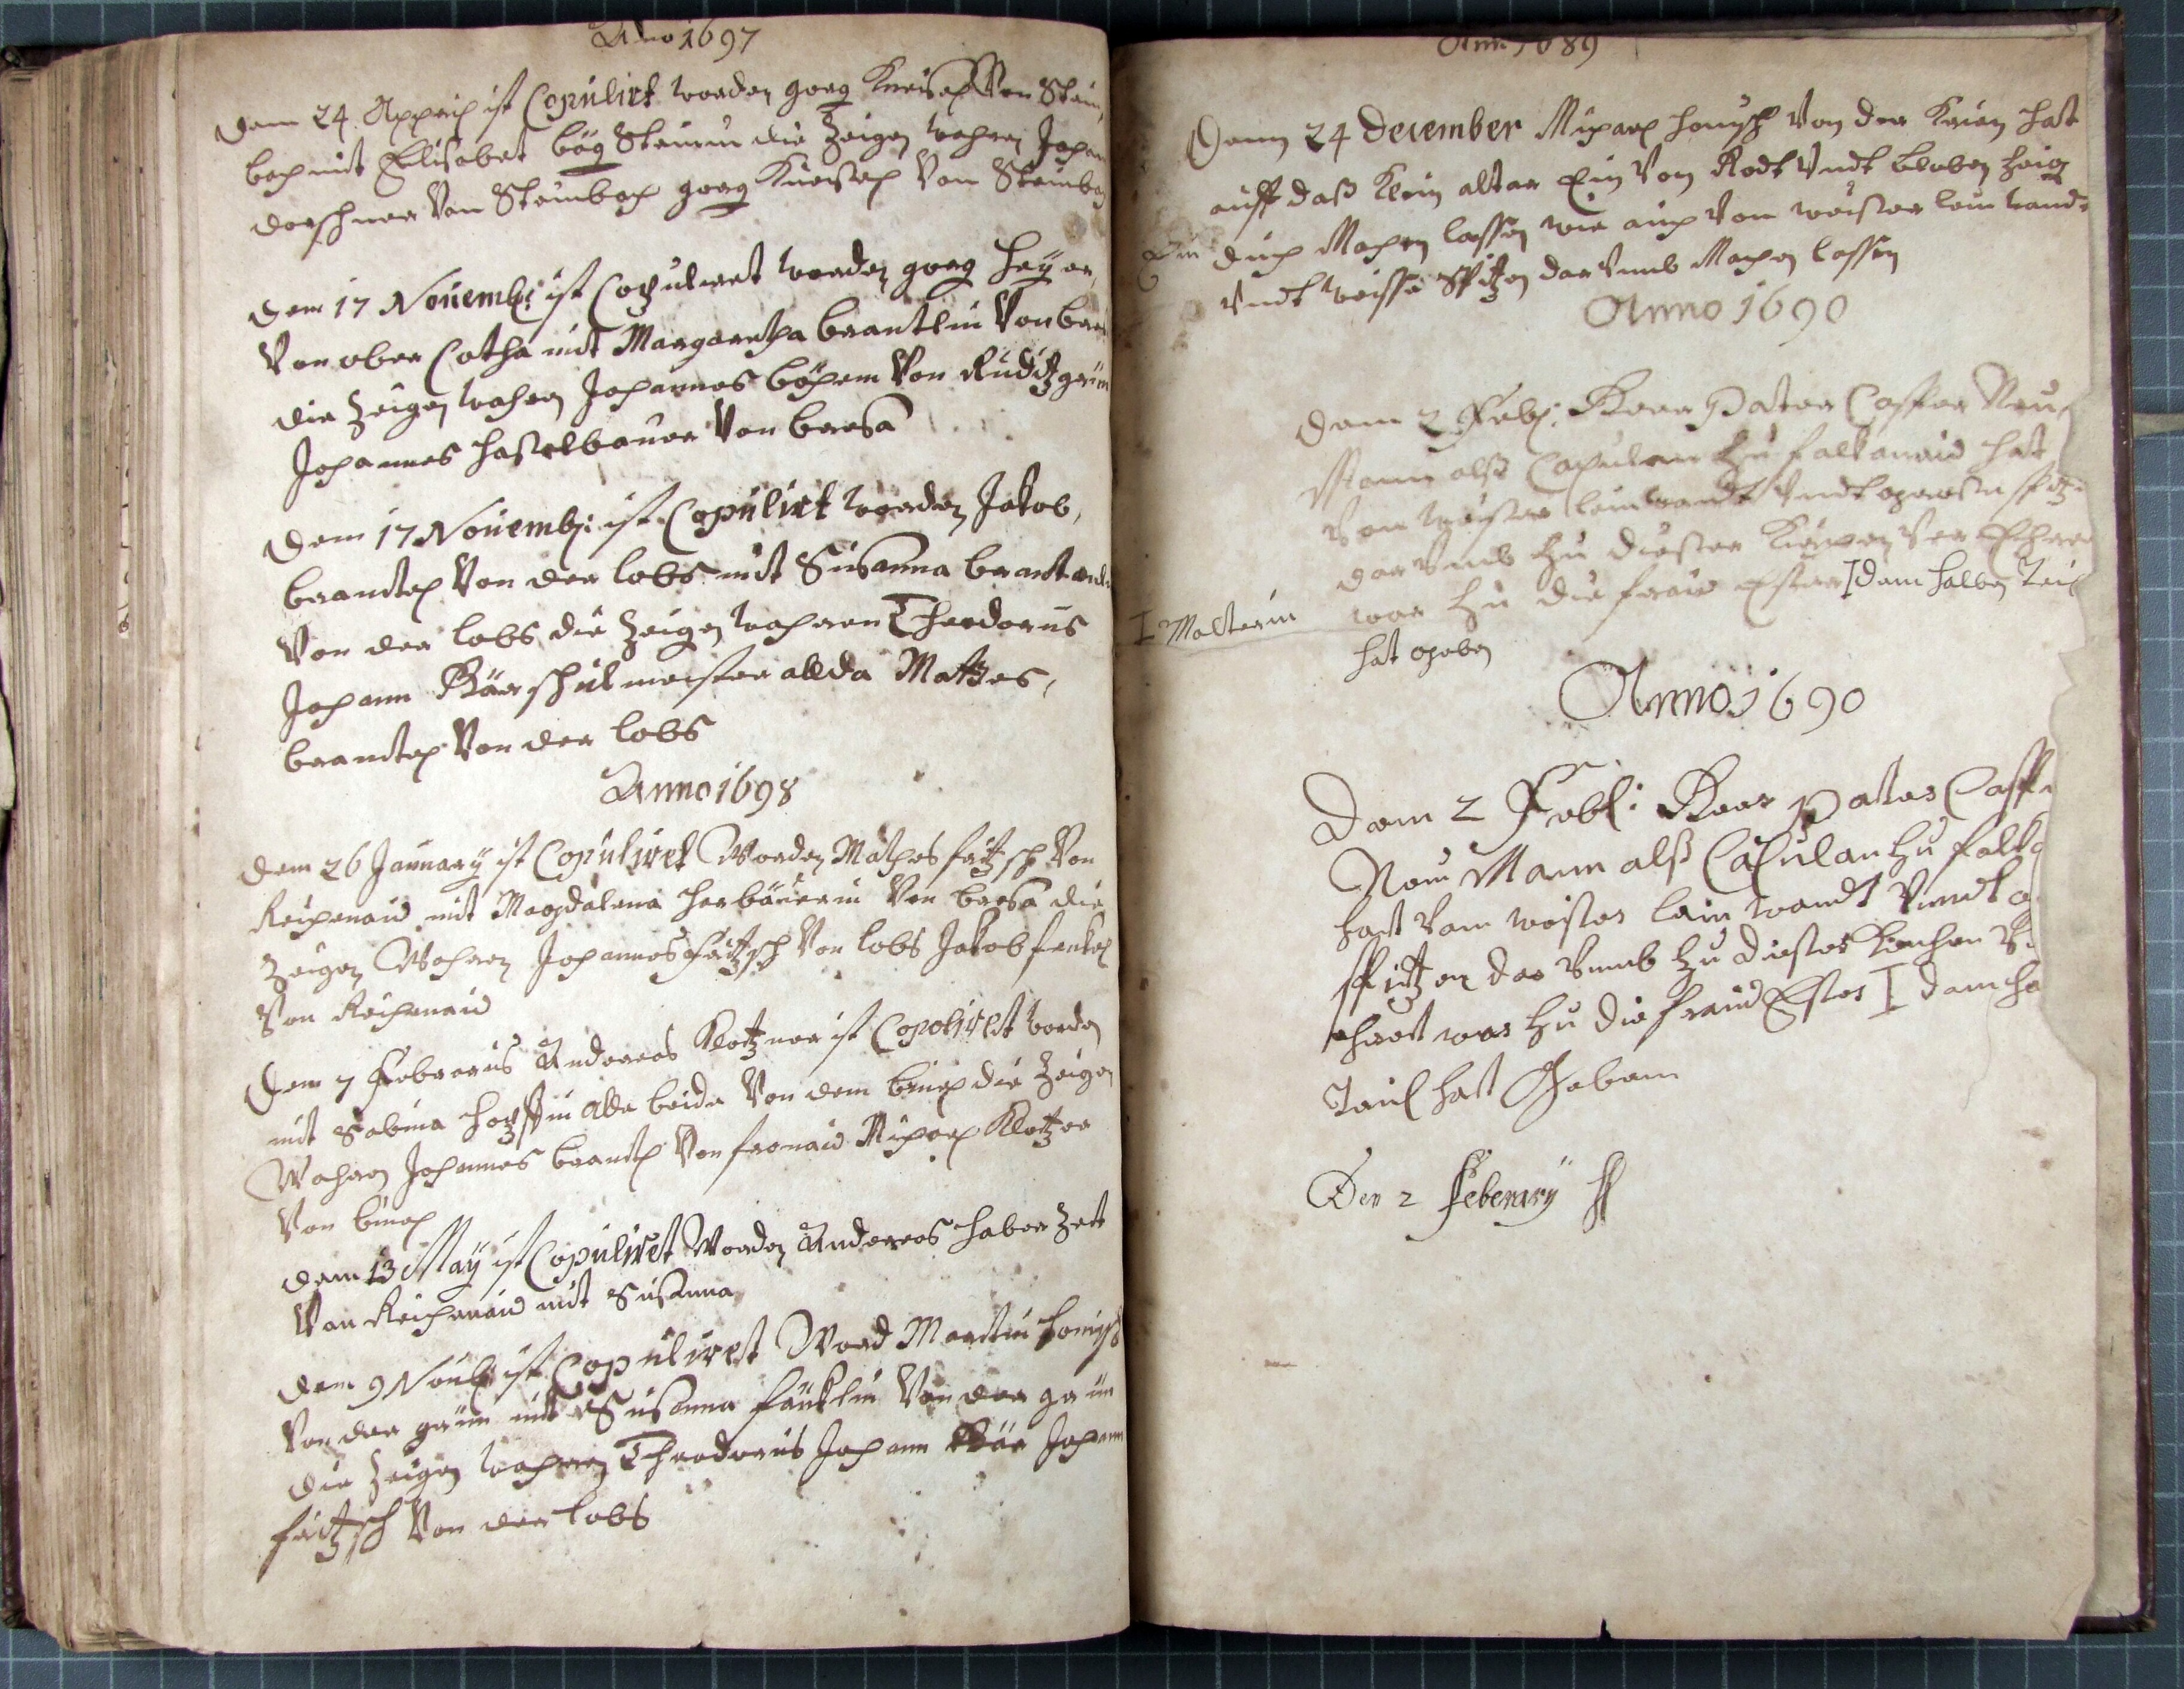 Anno 1697
dem 24 Apprill ist Copulirt worden georg Kneisel Von Stein
bach mit Elisabet die Zeigen wahren Johan
dorschner Von Steinbach georg Von Steinbach
dem 17 Nouemb: ist Copuliret worden georg
Von ober Cotha mit Margaretha brantlin Von
die Zeigen wahren Johannes böhem Von Ruditzgrün
Johannes haselbauer Von bresa
dem 17 Nouemb: ist Copulirt worden Jakob
brandtel Von der lobs mit Susanna
Von der lobs die Zeigen wahren Theodorus
Johann Bär schulmeister allda Mattes
brandtel Von der lobs
Anno 1698
dem 26 January ist Copuliret Worden Mathes fritzsch Von
Reichenaud mit Magdalena herbäuerin Von bresa die
Zeigen Wahren Johannes fritzsch Von lobs Jakob fenkel
Von Reichenaud
dem 7 Februarius Anderes Klotzner ist Copoliret worden
mit Sabina alle beide Von dem die Zeigen
Wahren Johannes brandtl Von fronaid Michael Klotzer
Von
dem 13 May ist Copuliret Worden Anderes haberzett
Von Reichenaud mit Susanna
dem 9 Noub: ist Copuliret Word Martin honisch
Von der grün mit Susanna Von der grün
die Zeigen wahren Theodorus Johann Bär Johann
fritzsch Von der lobs
Ann 1689
Denn 24 December Michael honisch Von der hatt
auff daß klein altar Ein Von Rodt Vndt bloben Zeig
Ein duch Machen lassen wie auch Von weisser leinwand
Vndt weisse spitzen darVmb Machen lassen
Anno 1690
dem 2 Feb: Herr Pater Casper Neu
Mann alß Capulan zu falkenaud hatt
Von weisser leinwandt Vndt spitz
dar Vmb zu dieser Kirchen Ver Ehret
war zu die fraw Ester I dem halben Teil
I Malterin
hat geben
Anno 1690
Dem 2 Feb: Herr Pater Caspe
Neu Mann alß Capulan zu falke
hatt Vom weiser leinwandt Vundt
spitzen dar Vmb zu dieser Kirchen V
ehret war zu die fraud Ester I dem ha
Teil hatt Gebenn
Den 2 Feberary